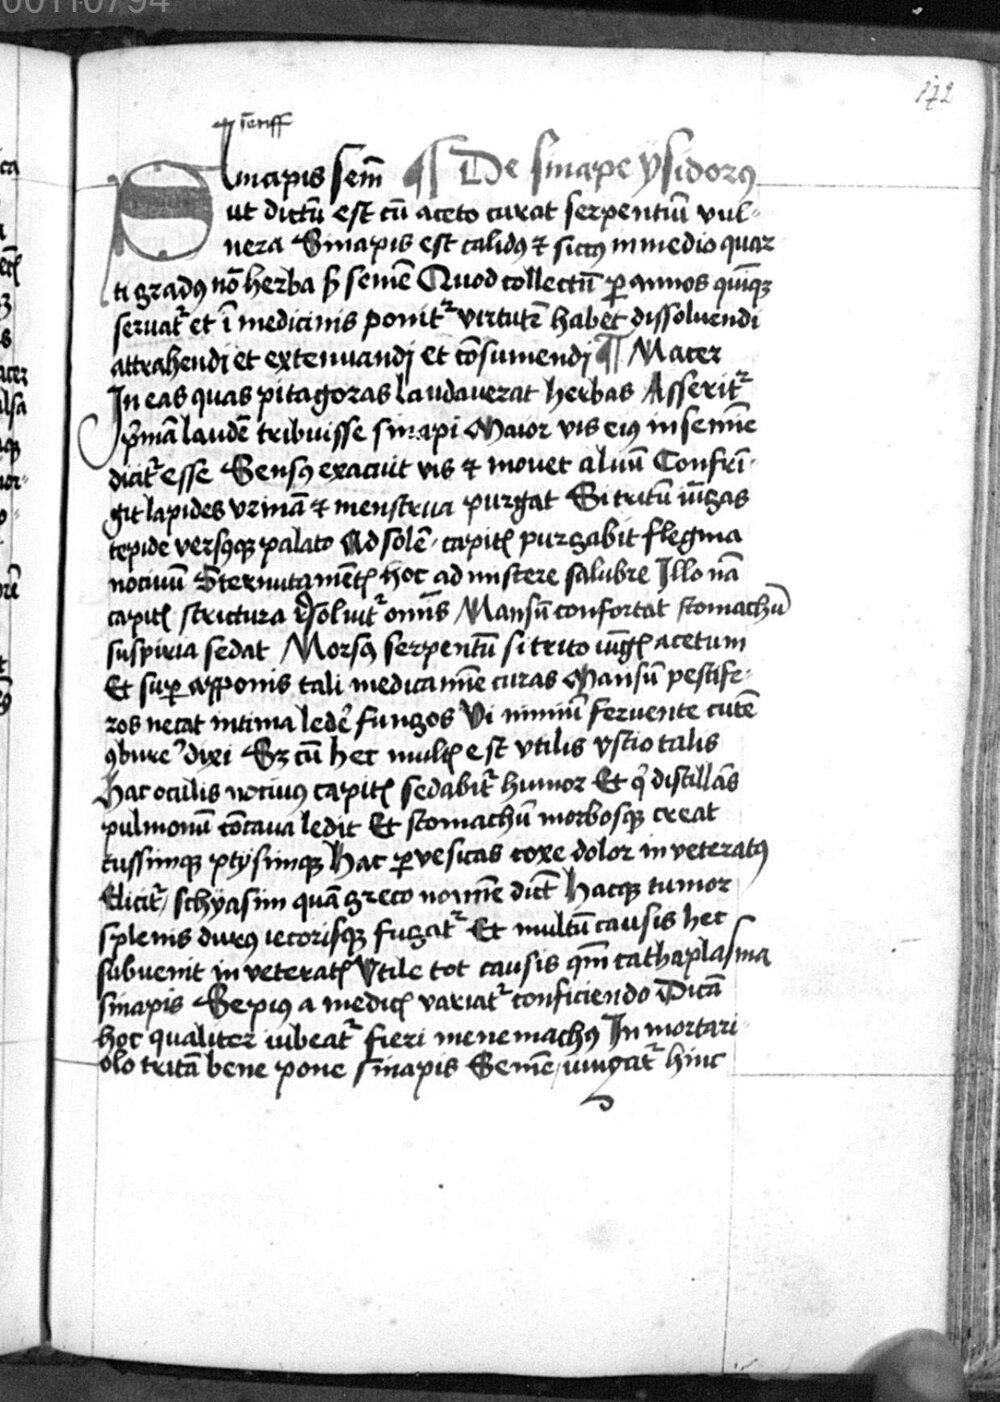 00110794
172
senff
Sinapis sem̄ ¶ De sinape ysidorꝰ
ut dictū est cū aceto curat serpentiū vul-
nera Sinapis est calidꝰ ⁊ siccꝰ in medio quar
ti gradꝰ nō herba sꝫ semē Quod collectū ꝑ annos quīqꝫ
seruat̉ et ī medicinis ponit̉ virtutē habet dissoluendi
attrahendi et extenuandi et cōsumendi ¶ Macer
In eas quas pitagoras laudauerat herbas Asserit̉
p̄mā laudē tribuisse sinapi Maior vis eiꝰ in semīe
dicit̉ esse Sensꝰ exacuit vis ⁊ mouet aluū Confrī-
git lapides vrinā ⁊ menstrua purgat Si tritū iūgas
tepide versqꝫ palato Ad solē capitꝭ purgabit flegma
nociuū Sternutamētꝭ hoc admistere salubre Illo nā
capitꝭ strictura resoluit̉ omīs Mansū confortat stomachū
suspiria sedat Morsꝰ serpentū si trito iūgꝭ acetum
Et suꝑ apponis tali medicamīe curas Mansū pestife-
ros necat intima ledē fungos Vi nimiū feruente cutē
ꝯbure dixi Sꝫ cū hec multꝭ est vtilis vstio talis
Hac oculis nociuꝰ capitꝭ sedabit̉ humor Et q̄ distillās
pulmonū cōcaua ledit Et stomachū morbosqꝫ creat
tussimqꝫ ptysimqꝫ Hac ꝑ vesicas coxe dolor inueteratꝰ
Elicit̉ schyasim quā greco nomīe dict̄ Hacqꝫ tumor
splenis durꝰ iecorisqꝫ fugat̉ Et multū causis hec
subuenit inueteratꝭ Vtile tot causis qm̄ cathaplasma
sinapis Sepiꝰ a medicꝭ variat̉ conficiendo Dicā
hoc qualiter iubeat̉ fieri menemachꝰ In mortari-
olo tritā bene pone sinapis Semē iungat̉ hinc